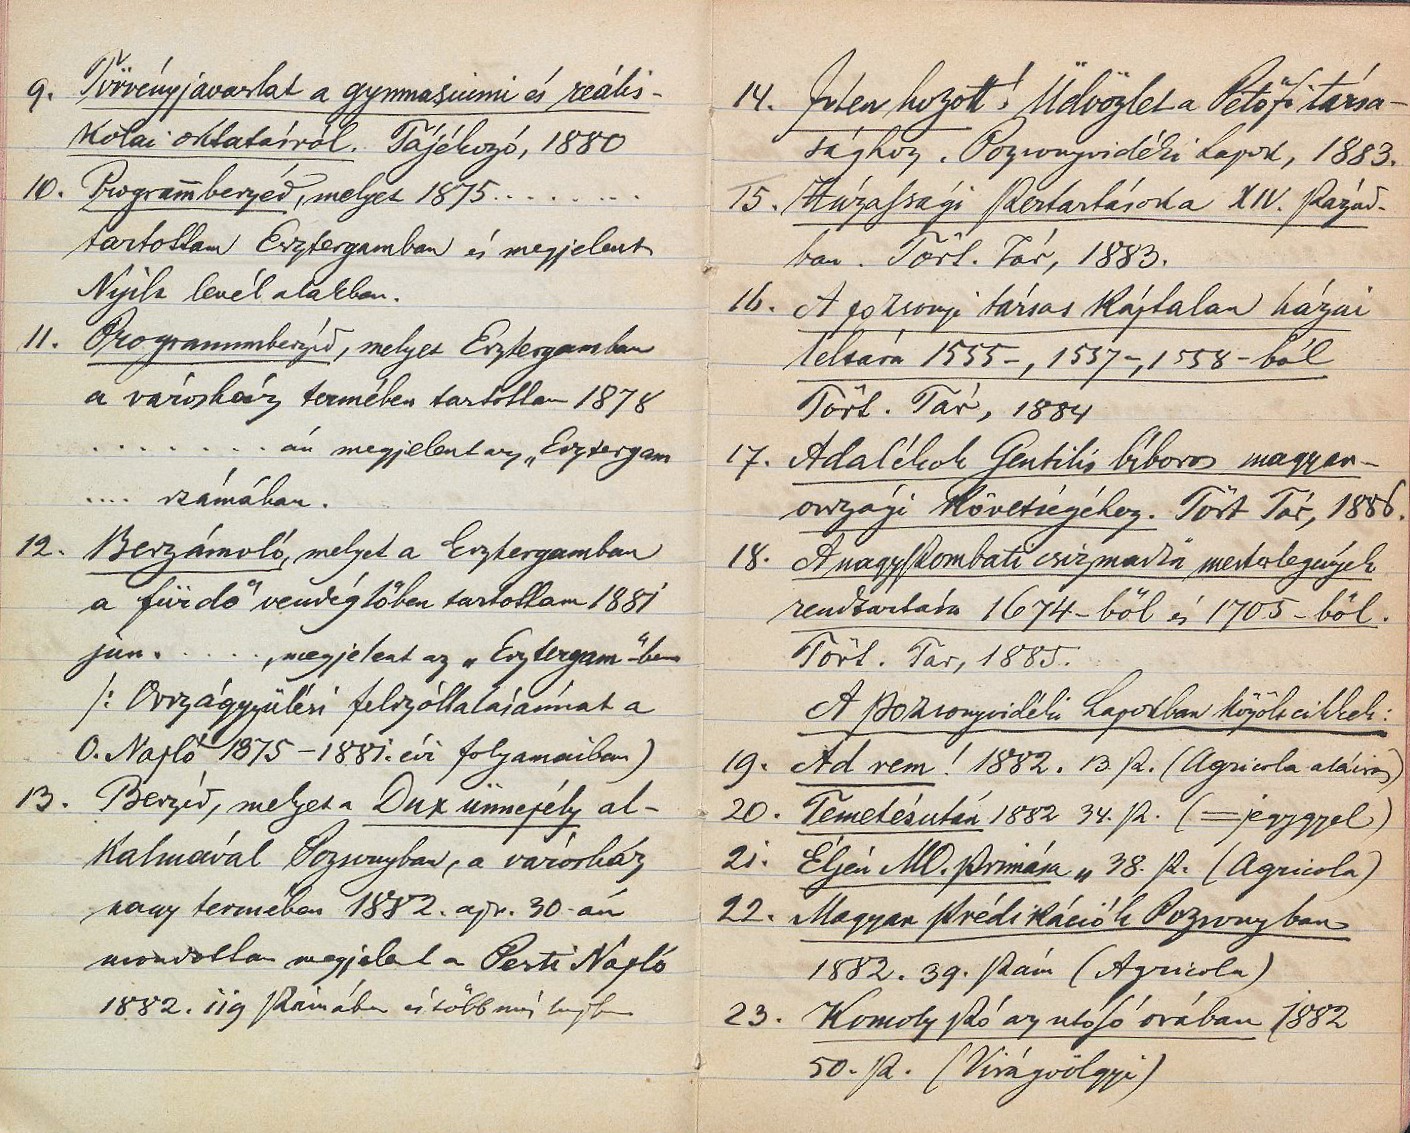 9. Törvényjavaslat a gymnasiumi és reális-
kolai oktatásról. Tájékozó, 1880
10. Programmbeszéd, melyet 1875.........
tartottam Esztergamban és megjelent
Nyilt levél alakban.
11. Programmbeszéd, melyet Esztergamban
a városház termében tartottam 1878
........ án megjelent az „Esztergam
.... számában.
12. Beszámoló, melyet a Esztergamban
a fürdő vendéglőben tartottam 1881
jun. ....., megjelent az „Esztergam"-ben
/: Országgyülési felszóllalásaimat a
O. Napló 1875-1881. évi folyamaiban)
13. Beszéd, melyet a Dux ünnepély al-
kalmával Pozsonyban, a városház
nagy termében 1882. apr. 30-án
mondottam megjelent a Pesti Napló
1882. 119 számában és több más
14. Isten hozott! Üdvözlet a Petőfi társa-
sághoz. Pozsonyvidéki Lapok, 1883.
15. Házassági szertartások a XIV. század-
ban. Tört. Tár, 1883.
16. A pozsonyi társas káptalan házai
leltára 1555-, 1557-, 1558-ból
Tört. Tár, 1884
17. Adalékok Gentilis bíboros magyar-
országi követségéhez. Tört Tár, 1886.
18. A nagyszombati csizmadia mesterlegények
rendtartása 1674-ből és 1705-ből.
Tört. Tar, 1885.
A pozsonyvidéki Lapokban közölt cikkek:
19. Ad rem! 1882. 13. sz. (Agricola aláirás)
20. Temetés után 1882 34. sz. (= jegygyel)
21. Éljen MO. prímása „ 38. sz. (Agricola)
22. Magyar prédikációk Pozsonyban
1882. 39. szám (Agricola)
23. Komoly szó az utósó órában 1882
50. sz. (Virágvölgyi)